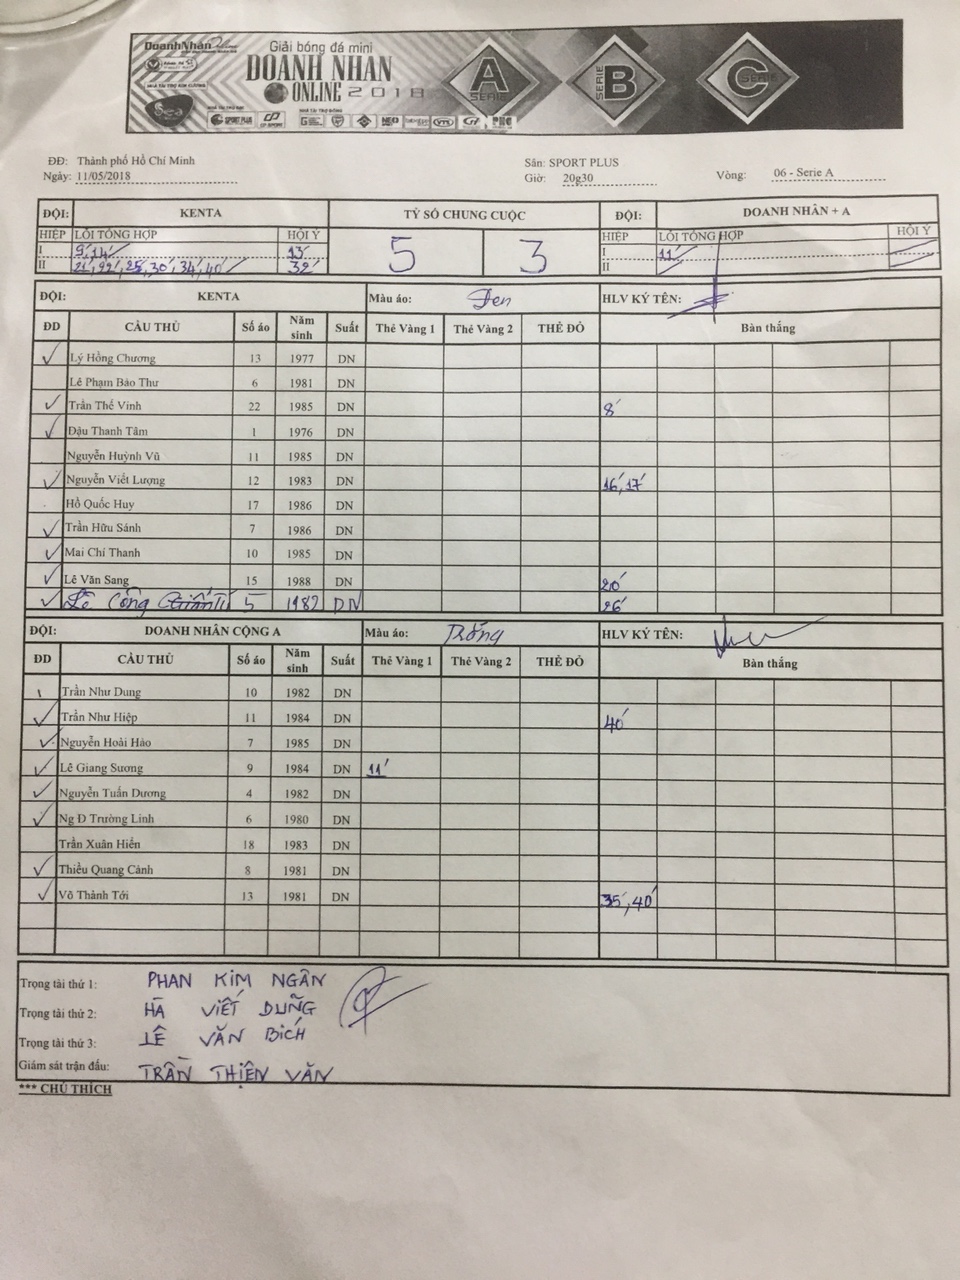 DoanhNhânOnline
Giải bóng đá mini
DOANH NHÂN
ONLINE 2018
A SERIE
SERIE B
SERIE C
NHÀ TÀI TRỢ KIM CƯƠNG
SPORT PLUS
ĐĐ: Thành phố Hồ Chí Minh Sân: SPORT PLUS
Ngày: 11/05/2018 Giờ: 20g30 Vòng: 06 - Serie A
ĐỘI: KENTA TỶ SỐ CHUNG CUỘC ĐỘI: DOANH NHÂN + A
HIỆP LỖI TỔNG HỢP HỘI Ý 5 3 HIỆP LỖI TỔNG HỢP HỘI Ý
I 9', 14' 13' I 11'
II 21', 22', 25', 30', 34', 40' 32' II
ĐỘI: KENTA Màu áo: Đen HLV KÝ TÊN:
ĐD CẦU THỦ Số áo Năm sinh Suất Thẻ Vàng 1 Thẻ Vàng 2 THẺ ĐỎ Bàn thắng
✓ Lý Hồng Chương 13 1977 DN
Lê Phạm Bảo Thư 6 1981 DN
✓ Trần Thế Vinh 22 1985 DN 8'
✓ Đậu Thanh Tâm 1 1976 DN
Nguyễn Huỳnh Vũ 11 1985 DN
✓ Nguyễn Viết Lượng 12 1983 DN 16', 17'
Hồ Quốc Huy 17 1986 DN
✓ Trần Hữu Sánh 7 1986 DN
✓ Mai Chí Thanh 10 1985 DN
✓ Lê Văn Sang 15 1988 DN 20'
✓ Lê Công 5 1982 DN 26'
ĐỘI: DOANH NHÂN CỘNG A Màu áo: Trắng HLV KÝ TÊN:
ĐD CẦU THỦ Số áo Năm sinh Suất Thẻ Vàng 1 Thẻ Vàng 2 THẺ ĐỎ Bàn thắng
Trần Như Dung 10 1982 DN
✓ Trần Như Hiệp 11 1984 DN 40'
✓ Nguyễn Hoài Hảo 7 1985 DN
✓ Lê Giang Sương 9 1984 DN 11'
✓ Nguyễn Tuấn Dương 4 1982 DN
✓ Ng Đ Trường Linh 6 1980 DN
Trần Xuân Hiển 18 1983 DN
✓ Thiều Quang Cảnh 8 1981 DN
✓ Võ Thành Tới 13 1981 DN 35', 40'
Trọng tài thứ 1: PHAN KIM NGÂN
Trọng tài thứ 2: HÀ VIẾT DŨNG
Trọng tài thứ 3: LÊ VĂN BÍCH
Giám sát trận đấu: TRẦN THIỆN VĂN
*** CHÚ THÍCH